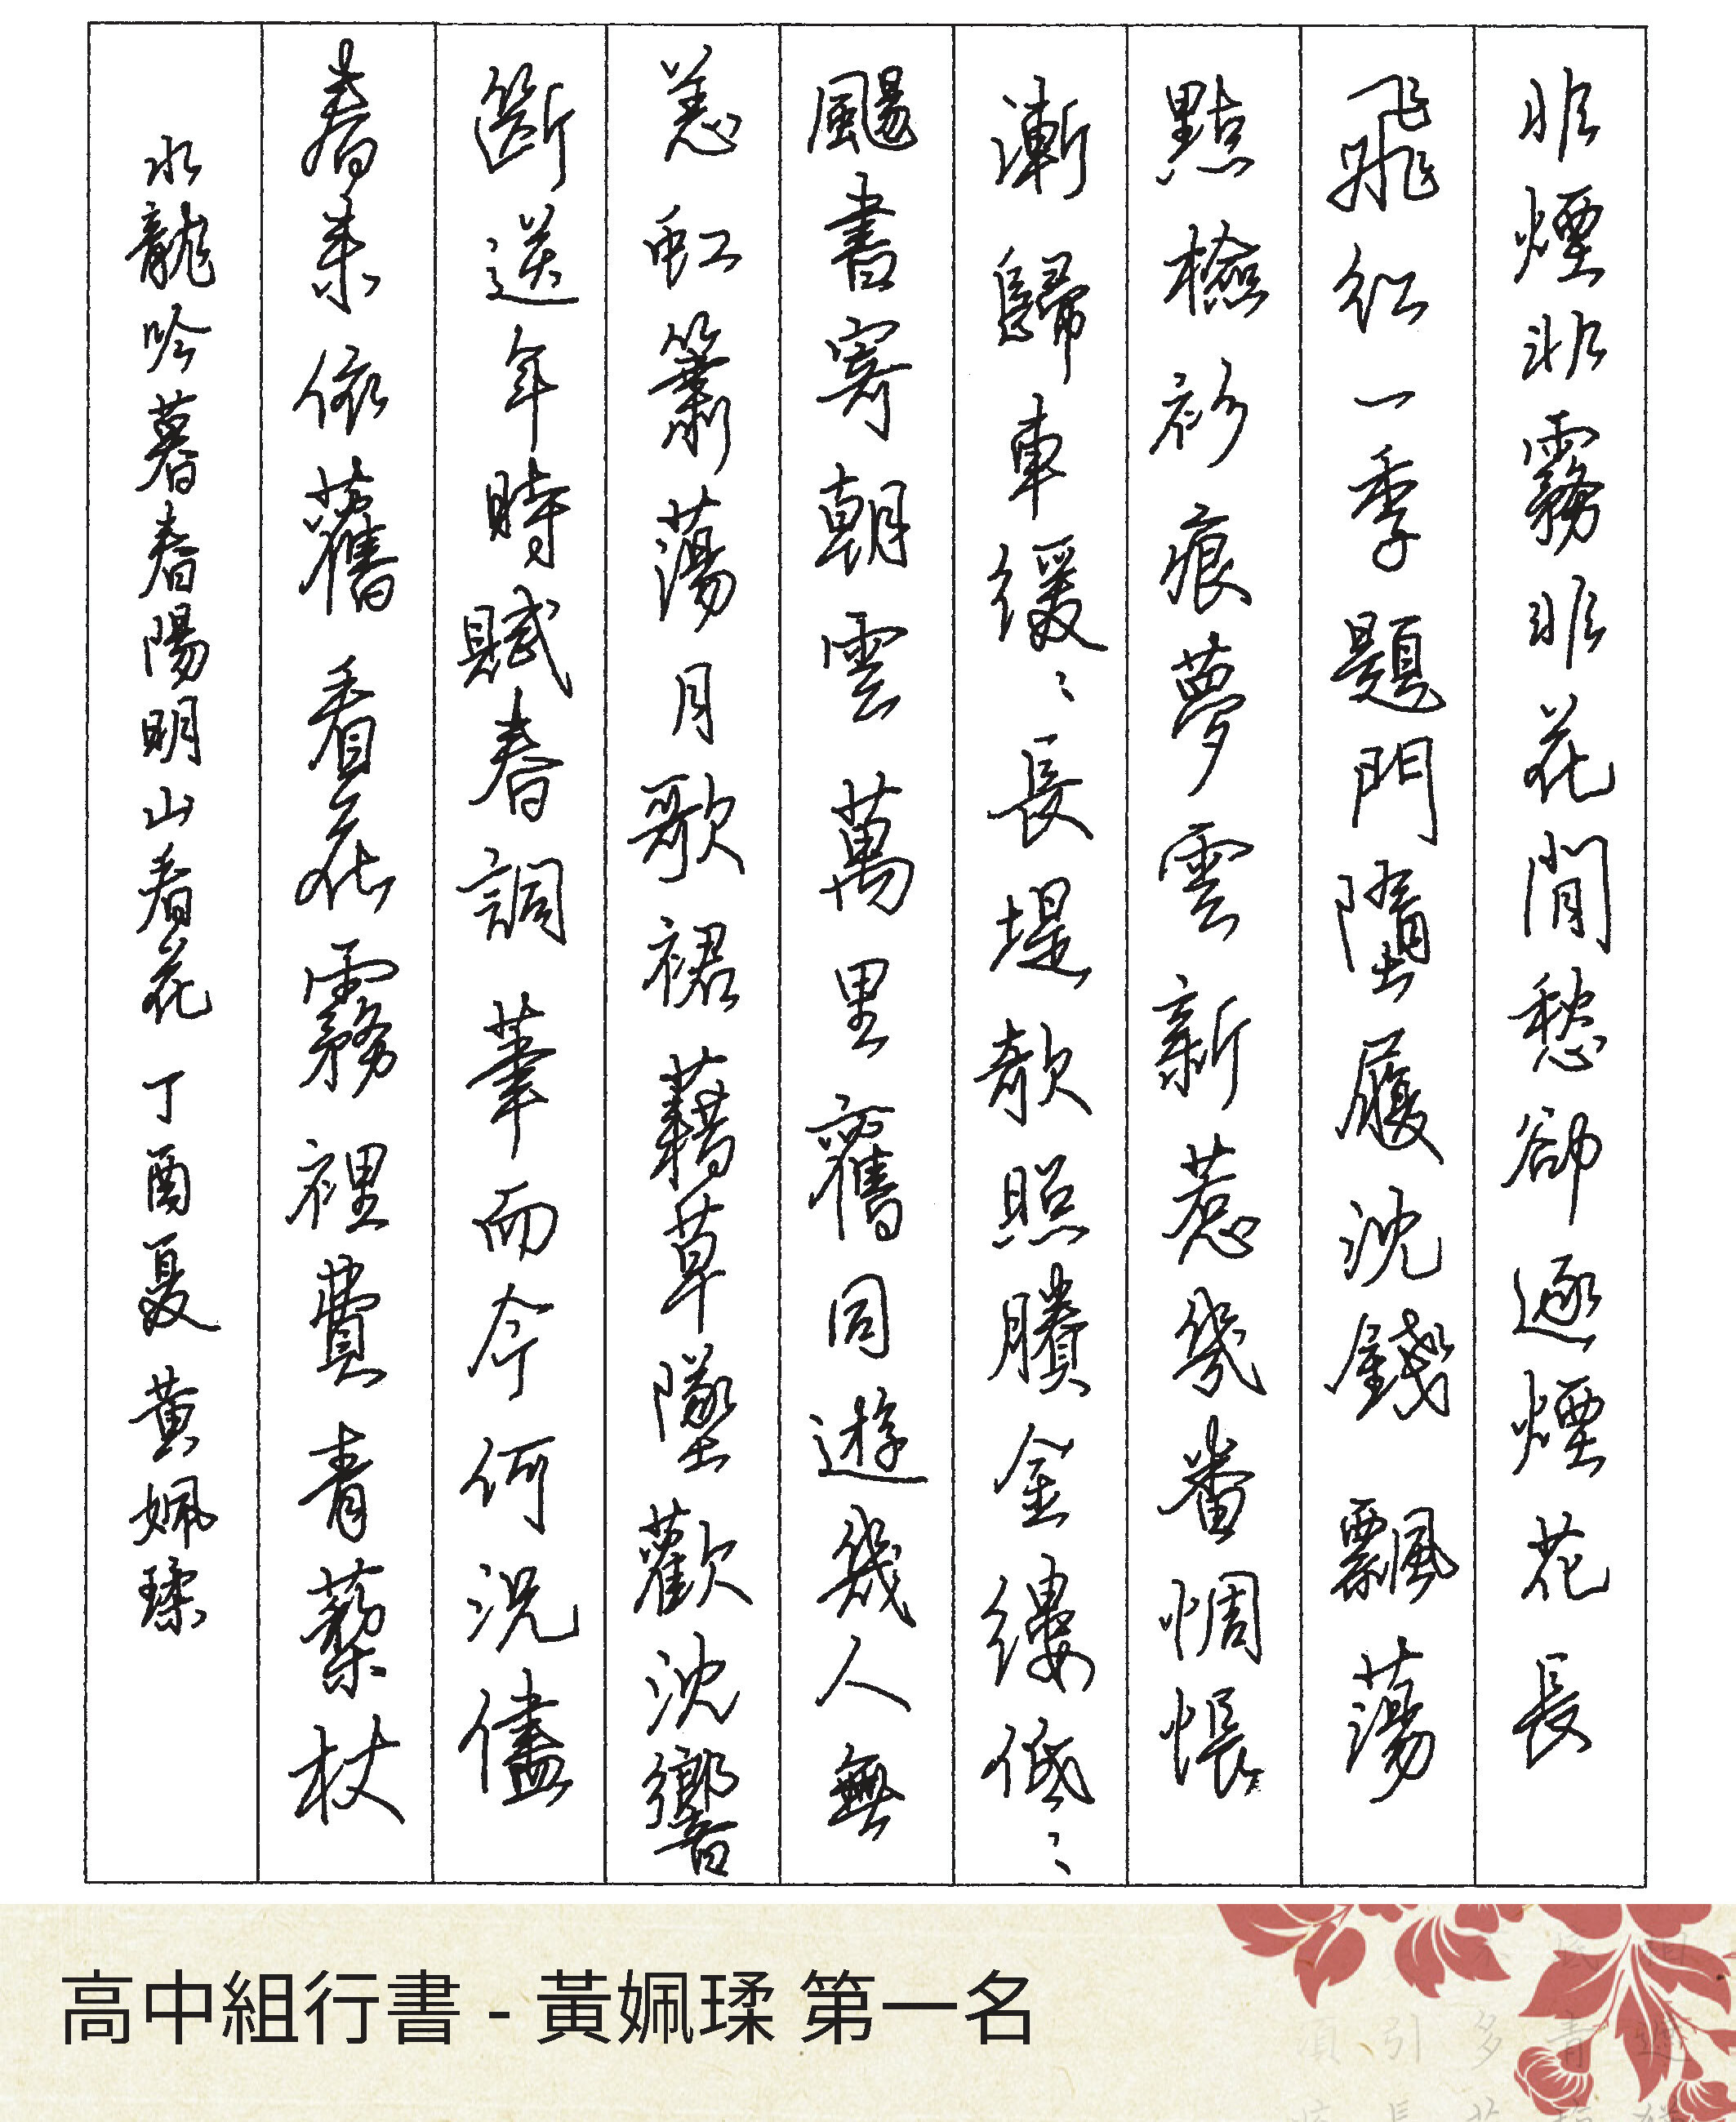 非煙非霧非花閒愁卻逐煙花長
飛飛紅一季題門墮屐沈錢飄蕩
點檢衫痕夢雲新惹幾番惆悵
漸歸車緩緩長堤欹照賸金縷低低
颺書寄朝雲萬里舊同遊幾人無
恙虹簫蕩月歌裙藉草墜歡沈響
斷送年時賦春調筆而今何況儘
春來依舊看花霧裡費青藜杖
水龍吟暮春陽明山看花 丁酉夏 黃姵瑈
高中組行書 - 黃姵瑈 第一名